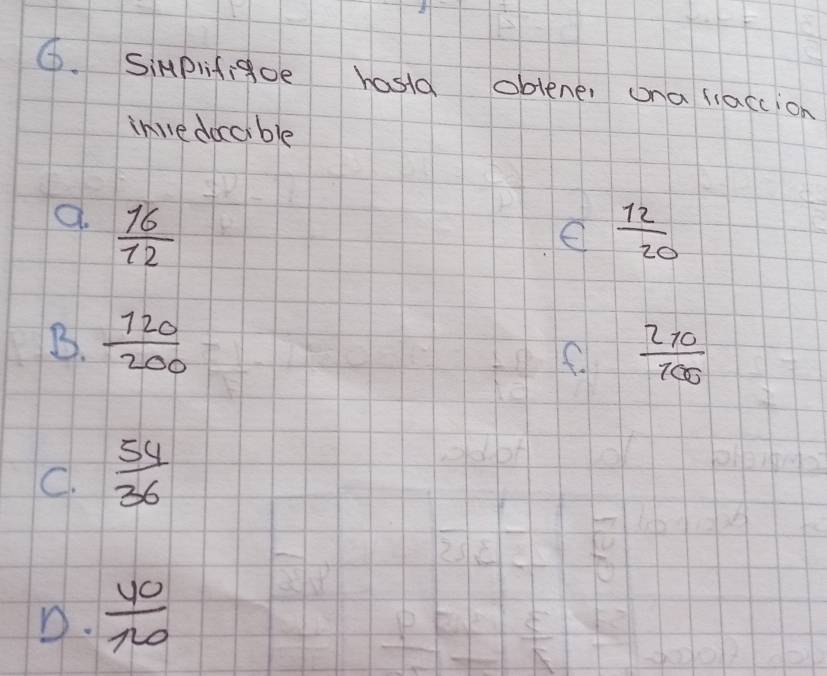 6. Simplifique hasta obtener una fraccion
irreducible
a. 16/12
E 12/20
B. 120/200
f. 210/100
C. 54/36
D. 40/120